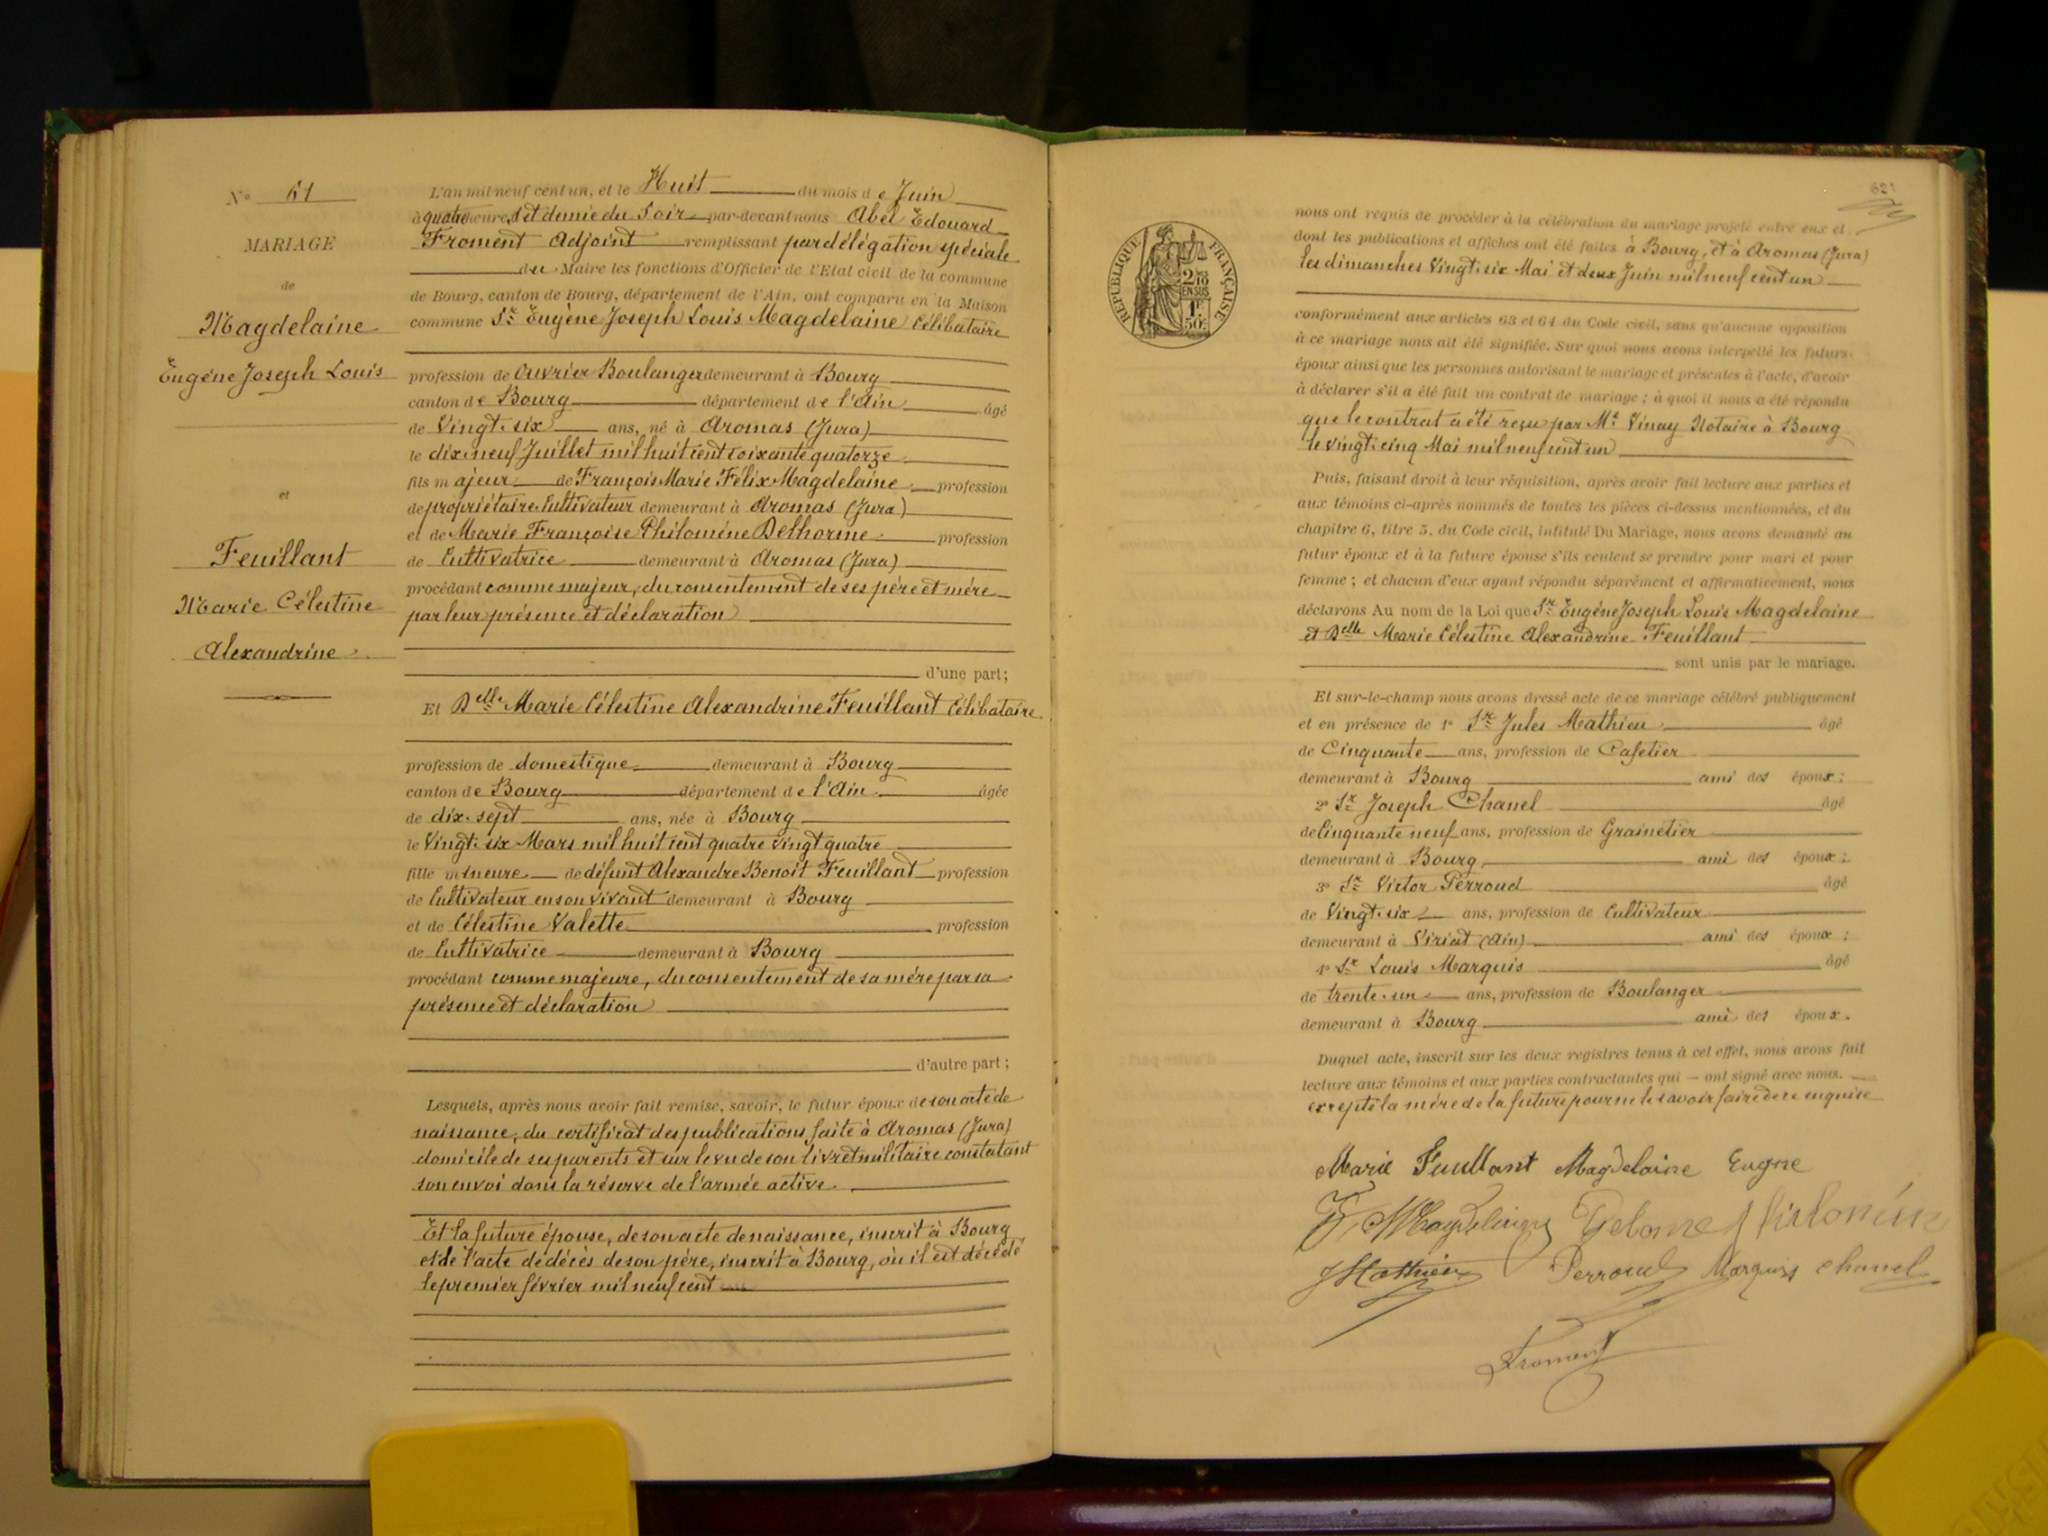 N° 61
MARIAGE
de
Magdelaine
Eugène Joseph Louis
et
Feuillant
Marie Célestine
Alexandrine
L'an mil neuf cent un, et le Huit du mois de Juin
à quatre heures et demie du Soir par-devant nous Abel Edouard
Froment Adjoint remplissant par délégation spéciale
du Maire les fonctions d'Officier de l'Etat civil de la commune
de Bourg, canton de Bourg, département de l'Ain, ont comparu en la Maison
commune Sr Eugène Joseph Louis Magdelaine Célibataire
profession de Ouvrier Boulanger demeurant à Bourg
canton de Bourg département de l'Ain âgé
de Vingt-six ans, né à Aromas (Jura)
le dix-neuf Juillet mil huit cent soixante quatorze
fils majeur de François Marie Félix Magdelaine profession
de propriétaire Cultivateur demeurant à Aromas (Jura)
et de Marie Françoise Philomène Delhorme profession
de Cultivatrice demeurant à Aromas (Jura)
procédant comme majeur, du consentement de ses père et mère
par leur présence et déclaration
d'une part;
Et Delle Marie Célestine Alexandrine Feuillant Célibataire
profession de domestique demeurant à Bourg
canton de Bourg département de l'Ain âgée
de dix-sept ans, née à Bourg
le Vingt-six Mars mil huit cent quatre vingt quatre
fille mineure de défunt Alexandre Benoit Feuillant profession
de Cultivateur en son vivant demeurant à Bourg
et de Célestine Valette profession
de Cultivatrice demeurant à Bourg
procédant comme majeure, du consentement de sa mère par sa
présence et déclaration
d'autre part;
Lesquels, après nous avoir fait remise, savoir, le futur époux de son acte de
naissance, du certificat des publications faite à Aromas (Jura)
domicile de ses parents et sur le vu de son livret militaire constatant
son envoi dans la réserve de l'armée active.
Et la future épouse, de son acte de naissance, inscrit à Bourg
et de l'acte de décès de son père, inscrit à Bourg, où il est décédé
le premier février mil neuf cent
62
RÉPUBLIQUE FRANÇAISE
2/10
EN SUS
1F
50c
nous ont requis de procéder à la célébration du mariage projeté entre eux et
dont les publications et affiches ont été faites à Bourg, et à Aromas (Jura)
les dimanches Vingt-six Mai et deux Juin mil neuf cent un
conformément aux articles 63 et 64 du Code civil, sans qu'aucune opposition
à ce mariage nous ait été signifiée. Sur quoi nous avons interpellé les futurs
époux ainsi que les personnes autorisant le mariage et présentes à l'acte, d'avoir
à déclarer s'il a été fait un contrat de mariage ; à quoi il nous a été répondu
que le contrat a été reçu par Me Vinay Notaire à Bourg
le vingt-cinq Mai mil neuf cent un
Puis, faisant droit à leur réquisition, après avoir fait lecture aux parties et
aux témoins ci-après nommés de toutes les pièces ci-dessus mentionnées, et du
chapitre 6, titre 5, du Code civil, intitulé Du Mariage, nous avons demandé au
futur époux et à la future épouse s'ils veulent se prendre pour mari et pour
femme ; et chacun d'eux ayant répondu séparément et affirmativement, nous
déclarons Au nom de la Loi que Sr Eugène Joseph Louis Magdelaine
et Delle Marie Célestine Alexandrine Feuillant
sont unis par le mariage.
Et sur-le-champ nous avons dressé acte de ce mariage célébré publiquement
et en présence de 1° Sr Jules Mathieu âgé
de Cinquante ans, profession de Cafetier
demeurant à Bourg ami des époux ;
2° Sr Joseph Chanel âgé
de Cinquante neuf ans, profession de Grainetier
demeurant à Bourg ami des époux ;
3° Sr Victor Perroud âgé
de Vingt-six ans, profession de Cultivateur
demeurant à Viriat (Ain) ami des époux ;
4° Sr Louis Marquis âgé
de trente-un ans, profession de Boulanger
demeurant à Bourg ami des époux.
Duquel acte, inscrit sur les deux registres tenus à cet effet, nous avons fait
lecture aux témoins et aux parties contractantes qui ont signé avec nous.
excepté la mère de la future pour ne le savoir faire de ce enquise
Marie Feuillant Magdelaine Eugne
F. Magdelaine
JMathieu Perroud Marquis Chanel
Froment